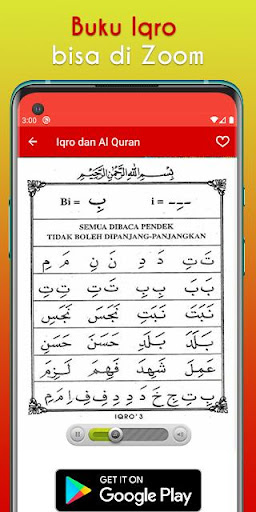 Buku Iqro
bisa di Zoom
3:00
Iqro dan Al Quran
بِسْمِ اللهِ الرَّحْمٰنِ الرَّحِيْمِ
Bi = بِ i = ـِـ
SEMUA DIBACA PENDEK
TIDAK BOLEH DIPANJANG-PANJANGKAN
تَ تِ دَ دِ نَ نِ مَ مِ
بَبَ بَبِ تَتَ تَتِ
نَبَتَ نَبِتَ نَجَسَ نَجِسَ
بَلَدَ بَلِدَ حَسَنَ حَسِنَ
عَمِلَ شَهِدَ فَهِمَ لَزِمَ
IQRO' 3
GET IT ON
Google Play